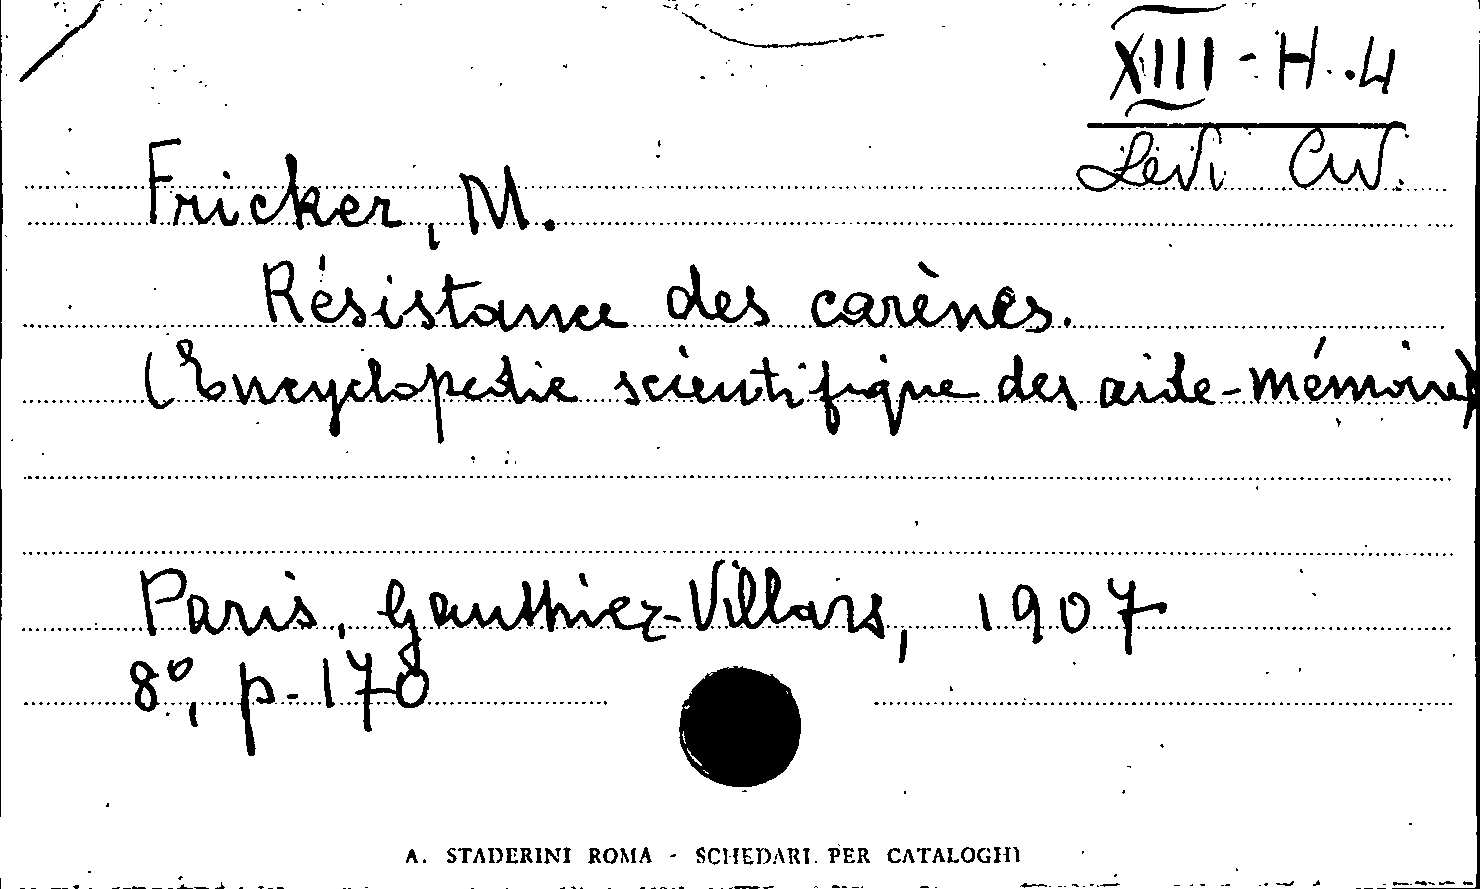 XIII - H. .4
Levi Civ.
Fricker, M.
Résistance des carènes.
(Encyclopédie scientifique des aide-mémoire)
Paris, Gauthier-Villars, 1907
8°, p. 178
A. STADERINI ROMA - SCHEDARI PER CATALOGHI